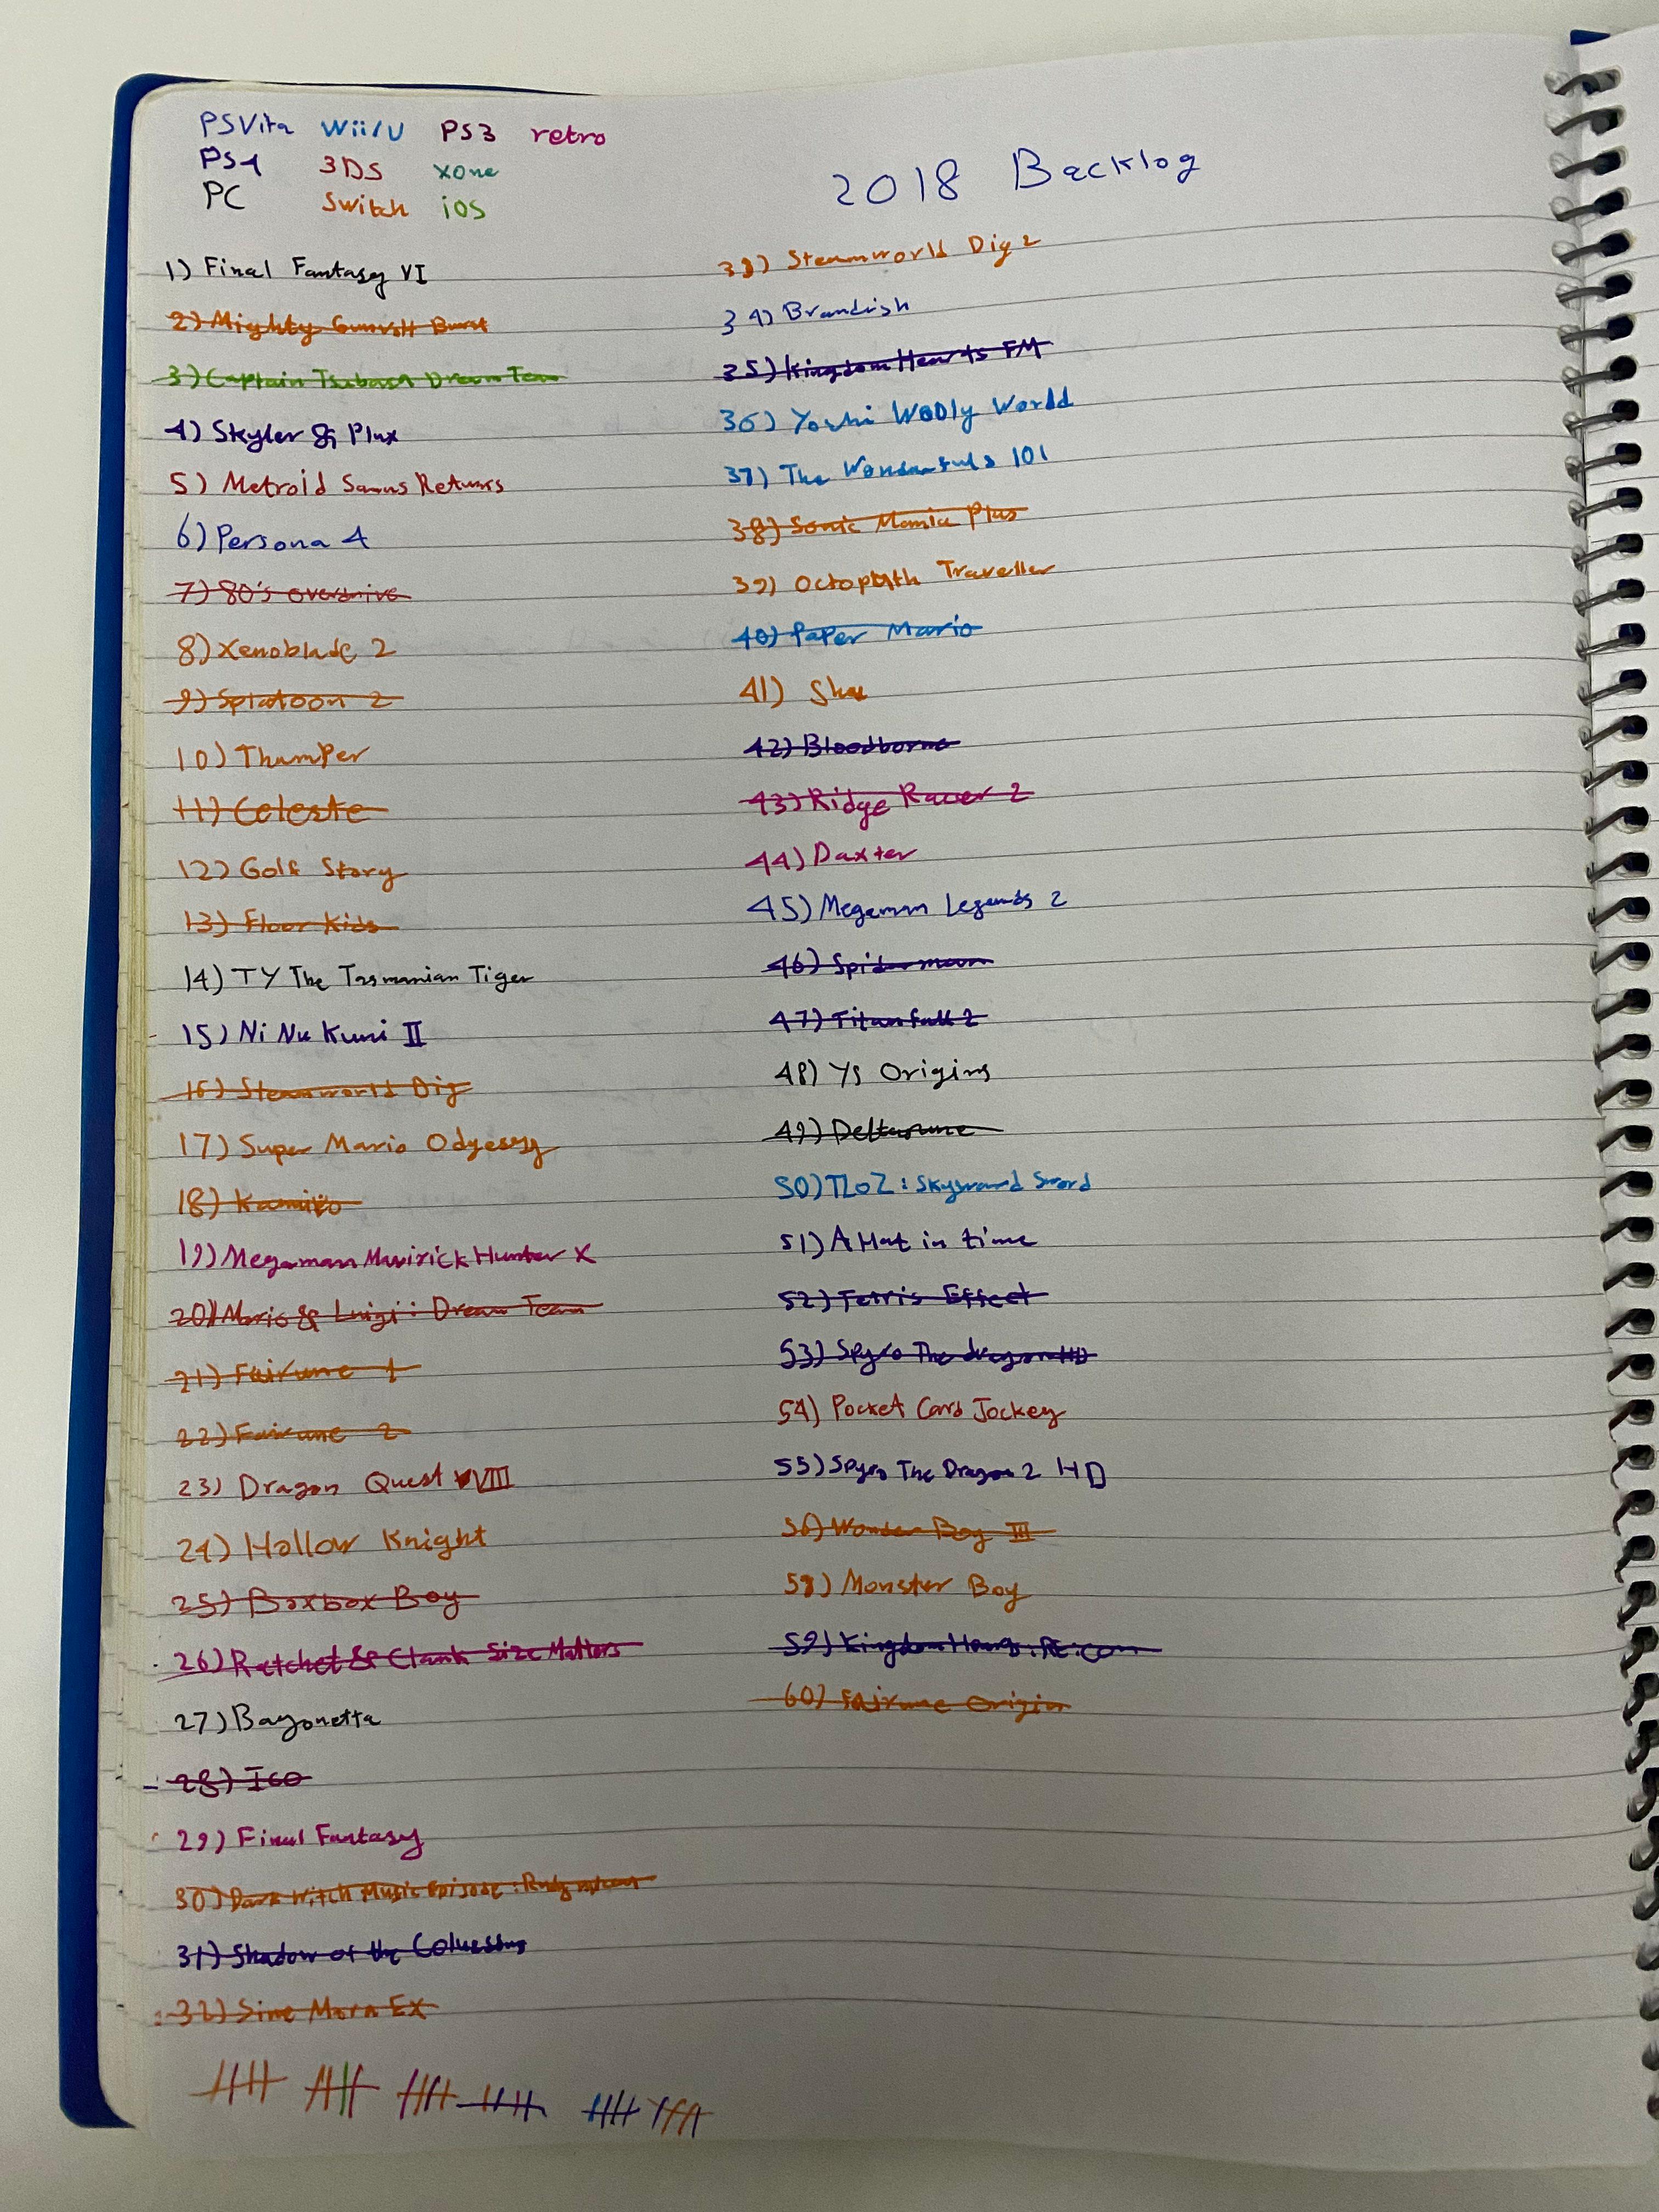 PSVita Wii/U PS3 retro
PS4 3DS xone
PC Switch iOS
2018 Backlog
1) Final Fantasy VI
2) Mighty Gunvolt Burst
3) Captain Tsubasa Dream Team
4) Skyler & Plux
5) Metroid Samus Returns
6) Persona 4
7) 80's overdrive
8) Xenoblade 2
9) Splatoon 2
10) Thumper
11) Celeste
12) Golf Story
13) Floor Kids
14) TY The Tasmanian Tiger
15) Ni Nu Kuni II
16) Steamworld Dig
17) Super Mario Odyessy
18) Kamiko
19) Megaman Mavirick Hunter X
20) Mario & Luigi: Dream Team
21) Fairune 1
22) Fairune 2
23) Dragon Quest VIII
24) Hollow Knight
25) Boxbox Boy
26) Ratchet & Clank Size Matters
27) Bayonetta
28) Ico
29) Final Fantasy
30) Dark Witch Music Episode:
31) Shadow of the Coluessus
32) Sine Mora EX
33) Steamworld Dig 2
34) Brandish
35) Kingdom Hearts FM
36) Yoshi Woolly World
37) The Wonderfuls 101
38) Sonic Mania Plus
39) Octopath Traveller
40) Paper Mario
41)
42) Bloodborne
43) Ridge Racer 2
44) Daxter
45) Megaman Legends 2
46) Spiderman
47) Titanfall 2
48) Ys Origins
49) Deltarune
50) TLOZ: Skyward Sword
51) A Hat in time
52) Tetris Effect
53) Spyro The dragon HD
54) Pocket Card Jockey
55) Spyro The Dragon 2 HD
56) Wonder Boy III
58) Monster Boy
59) Kingdom Hearts: RE:com
60) Fairune Origin